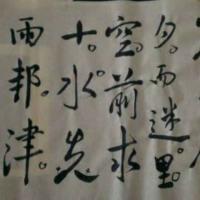 夕而迷里
空前求
十水先
雨邦津